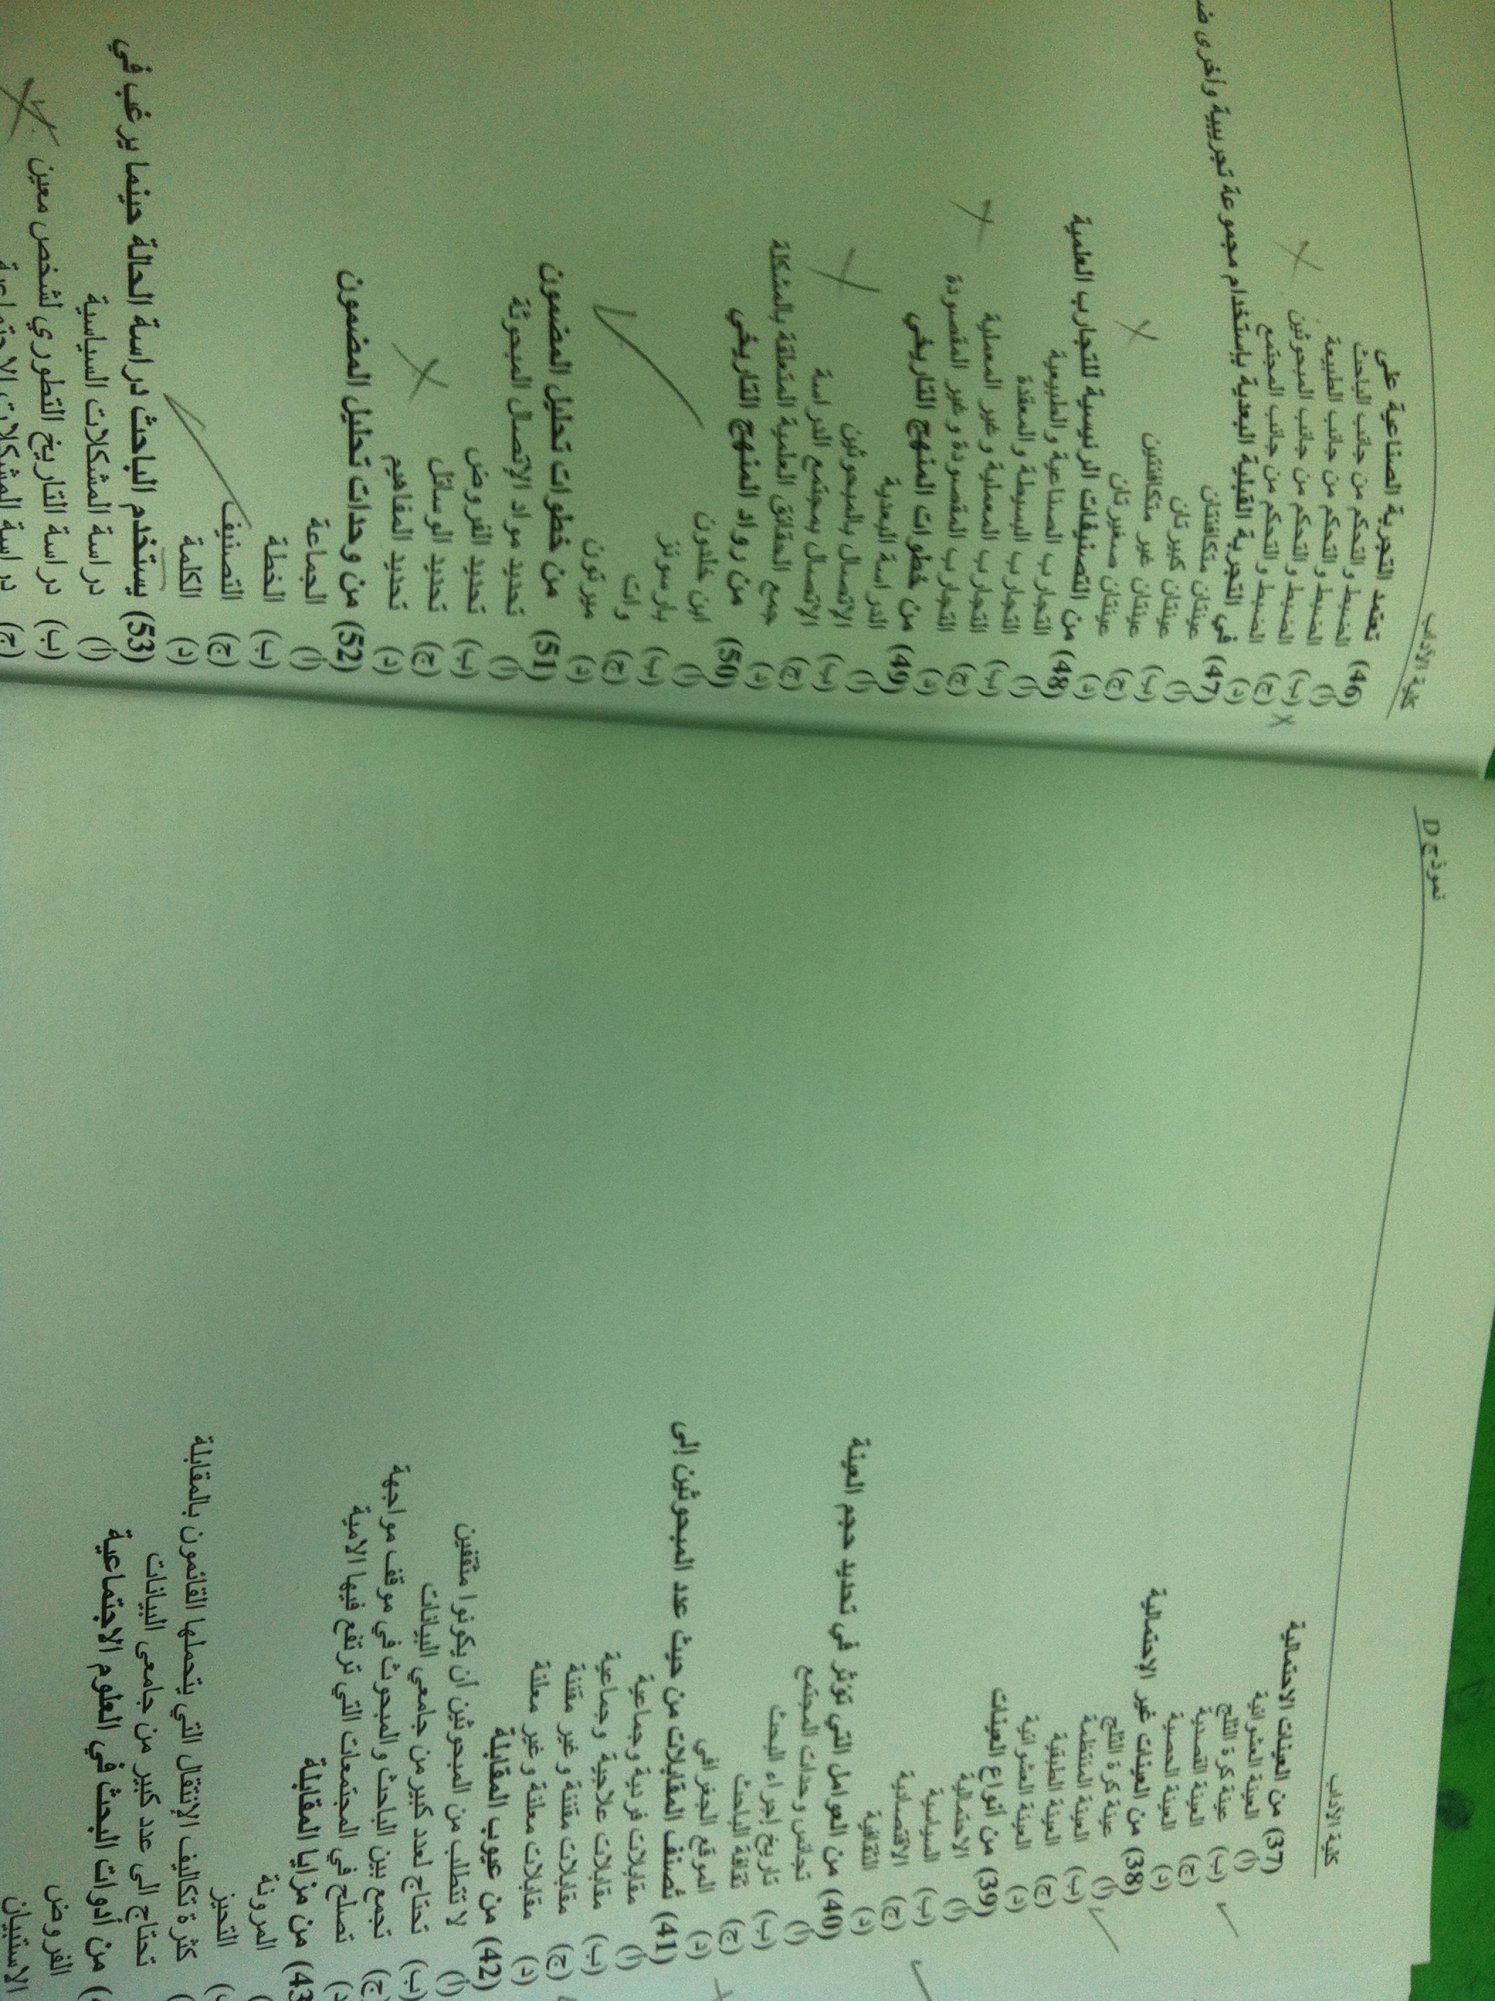 نموذج D
كلية الآداب
(37) من العينات الاحتمالية
(أ) العينة العشوائية
(ب) عينة كرة الثلج
(ج) العينة القصدية
(د) العينة الحصصية
(38) من العينات غير الإحتمالية
(أ) عينة كرة الثلج
(ب) العينة المنتظمة
(ج) العينة الطبقية
(د) العينة العشوائية
(39) من أنواع العينات
(أ) الاحتمالية
(ب) السياسية
(ج) الاقتصادية
(د) الثقافية
(40) من العوامل التي تؤثر في تحديد حجم العينة
(أ) تجانس وحدات المجتمع
(ب) تاريخ إجراء البحث
(ج) ثقافة الباحث
(د) الموقع الجغرافي
(41) تصنف المقابلات من حيث عدد المبحوثين إلى
(أ) مقابلات فردية وجماعية
(ب) مقابلات علاجية وجماعية
(ج) مقابلات مقننة وغير مقننة
(د) مقابلات معلنة وغير معلنة
(42) من عيوب المقابلة
(أ) لا تتطلب من المبحوثين أن يكونوا مثقفين
(ب) تحتاج لعدد كبير من جامعي البيانات
(ج) تجمع بين الباحث والمبحوث في موقف مواجهة
(د) تصلح في المجتمعات التي ترتفع فيها الامية
(43 من مزايا المقابلة
المرونة
التحيز
كثرة تكاليف الإنتقال التي يتحملها القائمون بالمقابلة
تحتاج الى عدد كبير من جامعى البيانات
من أدوات البحث في العلوم الاجتماعية
الفروض
الاستبيان
كلية الآداب
(46) تعتمد التجربة الصناعية على
(أ) الضبط والتحكم من جانب الباحث
(ب) الضبط والتحكم من جانب الطبيعة
(ج) الضبط والتحكم من جانب المبحوثين
(د) الضبط والتحكم من جانب المجتمع
(47) في التجربة القبلية البعدية بإستخدام مجموعة تجريبية وأخرى
(أ) عينتان متكافئتان
(ب) عينتان كبيرتان
(ج) عينتان غير متكافئتين
(د) عينتان صغيرتان
(48) من التصنيفات الرئيسية للتجارب العلمية
(أ) التجارب الصناعية والطبيعية
(ب) التجارب البسيطة والمعقدة
(ج) التجارب المعملية وغير المعملية
(د) التجارب المقصودة وغير المقصودة
(49) من خطوات المنهج التاريخي
(أ) الدراسة البعدية
(ب) الإتصال بالمبحوثين
(ج) الإتصال بمجتمع الدراسة
(د) جمع الحقائق العلمية المتعلقة بالمشكلة
(50) من رواد المنهج التاريخي
(أ) ابن خلدون
(ب) بارسونز
(ج) وات
(د) ميرتون
(51) من خطوات تحليل المضمون
(أ) تحديد مواد الإتصال المبحوثة
(ب) تحديد الفروض
(ج) تحديد الوسائل
(د) تحديد المفاهيم
(52) من وحدات تحليل المضمون
(أ) الجماعة
(ب) الخطة
(ج) التصنيف
(د) الكلمة
(53) يستخدم الباحث دراسة الحالة حينما يرغب في
(أ) دراسة المشكلات السياسية
(ب) دراسة التاريخ التطوري لشخص معين
(ج) دراسة المشكلات الاجتماعية